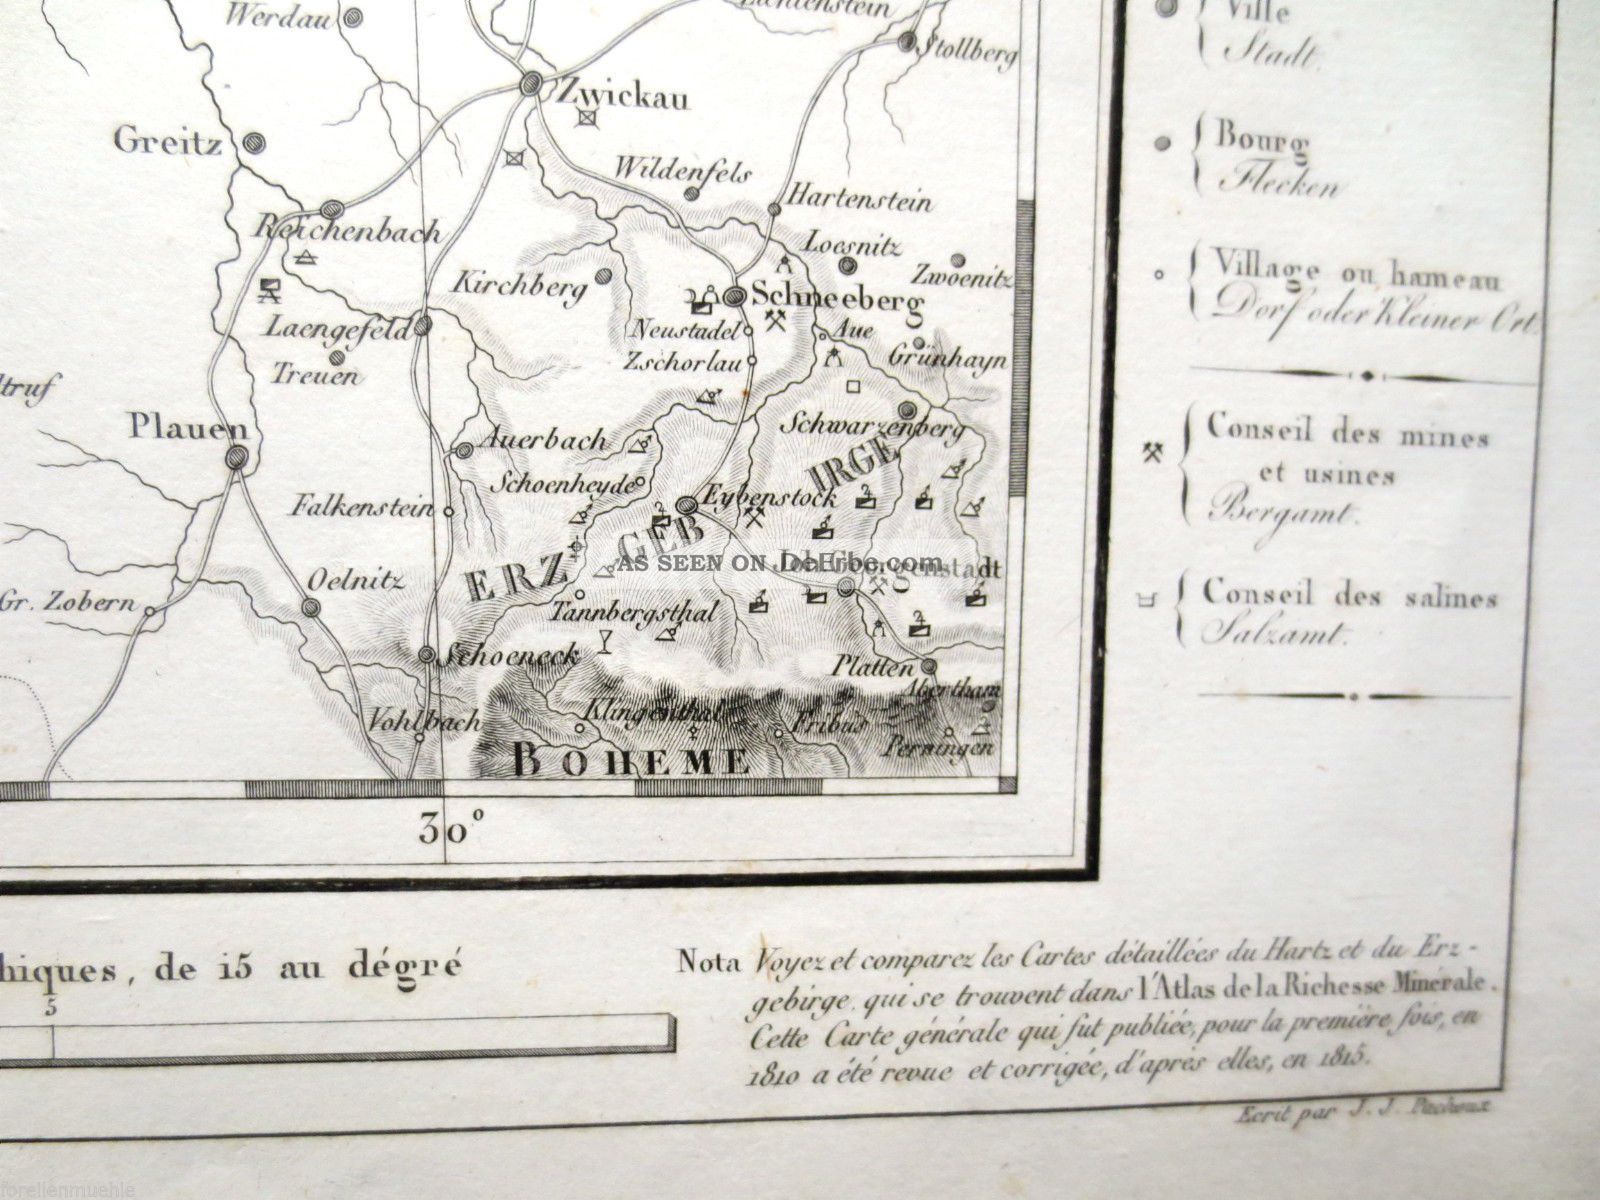 Werdau
Stollberg
Zwickau
Greitz
Wildenfels
Hartenstein
Reichenbach
Loesnitz
Zwoenitz
Kirchberg
Schneeberg
Laengefeld
Neustadel
Aue
Treuen
Zschorlau
Grünhayn
ltruf
Plauen
Schwarzenberg
Auerbach
Schoenheyde
Eybenstock
Falkenstein
ERZ GEB IRGE
AS SEEN ON DeErbe.com
Oelnitz
Gr. Zobern
Tannbergsthal
Schoeneck
Platten
Abertham
Klingenthal
Vohlbach
Fribus
Perningen
BOHEME
30°
Ville
Stadt.
Bourg
Flecken
Village ou hameau
Dorf oder Kleiner Ort.
Conseil des mines
et usines
Bergamt.
Conseil des salines
Salzamt.
hiques, de 15 au dégré
5
Nota Voyez et comparez les Cartes détaillées du Hartz et du Erz-
gebirge, qui se trouvent dans l'Atlas de la Richesse Minérale.
Cette Carte générale qui fut publiée, pour la première fois, en
1810 a été revue et corrigée, d'après elles, en 1815.
Ecrit par J. J.
forellenmuehle